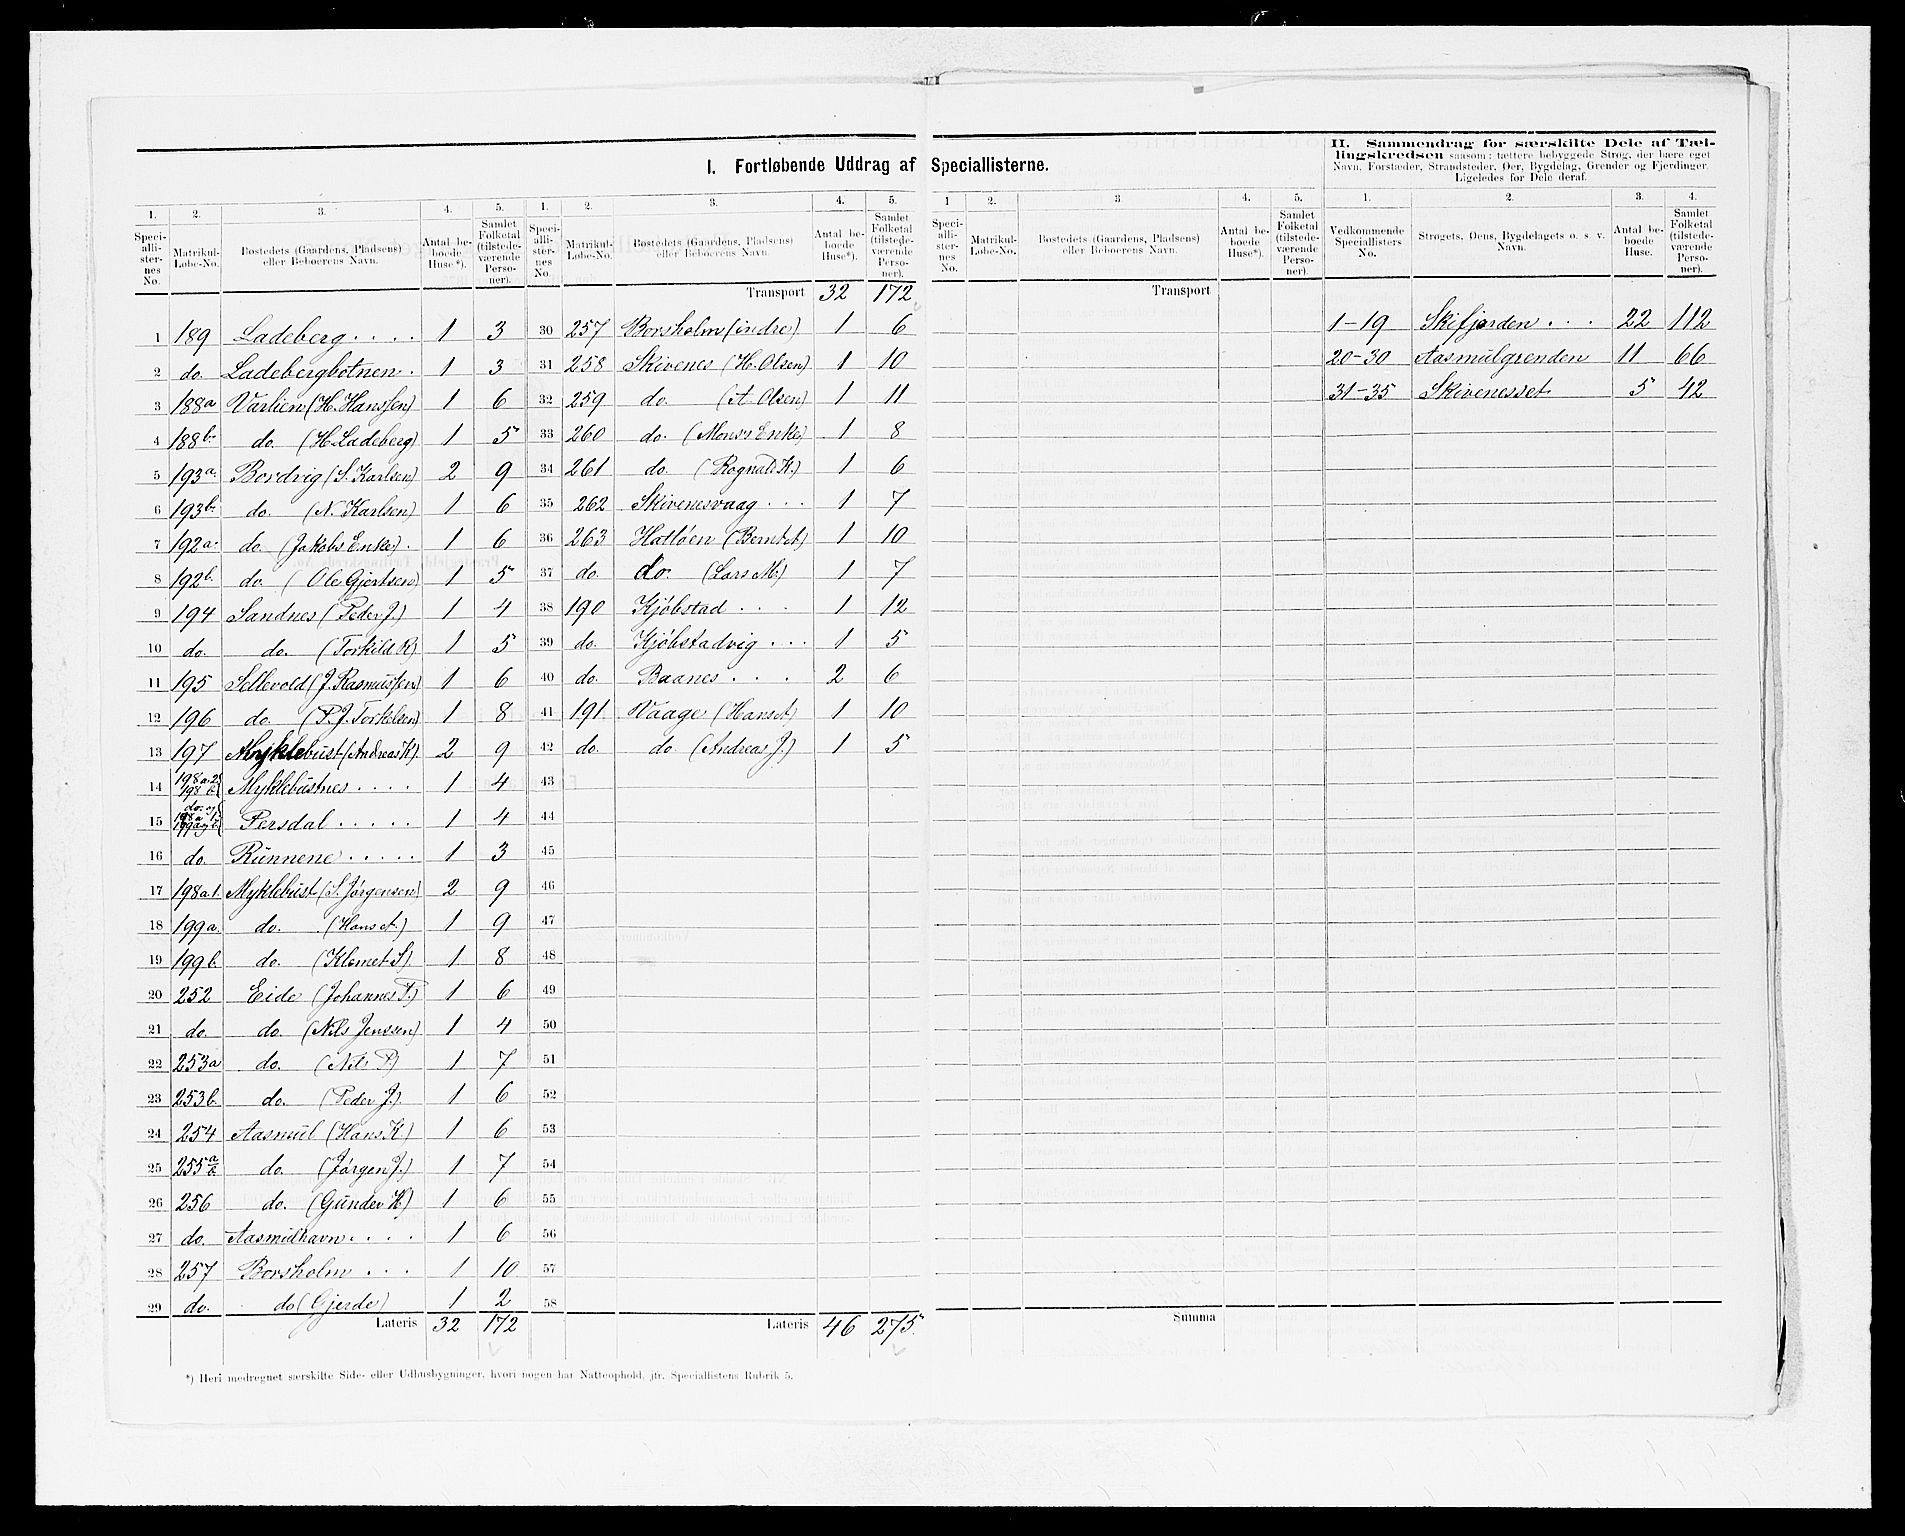 I. Fortløbende Uddrag af Speciallisterne.
II. Sammendrag for særskilte Dele af Tæl-
lingskredsen saasom: tættere bebyggede Strøg, der bære eget
Navn, Forstæder, Strandsteder, Øer, Bygdelag, Grender og Fjerdinger.
Ligeledes for Dele deraf.
1. 2. 3. 4. 5. 1. 2. 3. 4. 5. 1 2. 3 4. 5. 1. 2. 3. 4.
Speciallisternes No. Matrikul-Løbe-No. Bostedets (Gaardens, Pladsens) eller Beboerens Navn. Antal beboede Huse*). Samlet Folketal (tilstedeværende Personer).
Speciallisternes No. Matrikul-Løbe-No. Bostedets (Gaardens, Pladsens) eller Beboerens Navn. Antal beboede Huse*). Samlet Folketal (tilstedeværende Personer).
Speciallisternes No. Matrikul-Løbe-No. Bostedets (Gaardens, Pladsens) eller Beboerens Navn. Antal beboede Huse*). Samlet Folketal (tilstedeværende Personer).
Vedkommende Speciallisters No. Strøgets, Øens, Bygdelagets o. s. v. Navn. Antal beboede Huse. Samlet Folketal (tilstedeværende Personer).
1 189 Ladeberg . . . . 1 3
2 do. Ladebergbotnen . 1 3
3 188a Varlien (H. Hanssen) 1 6
4 188b. do. (H. Ladeberg) 1 5
5 193a. Bordvig (S. Karlsen) 2 9
6 193b. do. (N. Karlsen) 1 6
7 192a. do. (Jakobs Enke) . 1 6
8 192b. do. (Ole Gjertsen) 1 5
9 194 Sandnes (Peder J.) 1 4
10 do. do. (Torkild R) 1 5
11 195 Sellevold (J. Rasmussen) 1 6
12 196 do. (P. J. Torkelsen) 1 8
13 197 Myklebust (Andreas K). 2 9
14 198a.2 198 b. Myklebustnes . . . . 1 4
15 Persdal . . . . . 1 4
16 do. Runnene . . . . . 1 3
17 198a.1. Myklebust (S. Jørgensen) 2 9
18 199a. do. (Hans A.) 1 9
19 199b. do. (Klemet S). 1 8
20 252 Eide (Johannes P.) 1 6
21 do. do. (Nils Jenssen) 1 4
22 253a do. (Nils P) 1 7
23 253b. do. (Peder J.). 1 6
24 254 Aasmul (Hans K) 1 6
25 255 a/b. do. (Jørgen J.) 1 7
26 256 do. (Gunder H) 1 6
27 do. Aasmulhavn . . . . 1 6
28 257 Borsholm . . . 1 10
29 do. do (Gjerde) 1 2
Lateris 32 172
Transport 32 172
30 257 Borsholm (indre) 1 6
31 258 Skivenes (H. Olsen) 1 10
32 259 do. (A. Olsen) 1 11
33 260 do. (Mons's Enke) 1 8
34 261 do. (Rognald K.) 1 6
35 262 Skivenesvaag . . . 1 7
36 263 Hatløen (Bernt A) 1 10
37 do. do. (Lars M.) 1 7
38 190 Kjøbstad . . . 1 12
39 do. Kjøbstadvig . . . 1 5
40 do. Baanes . . . 2 6
41 191. Vaage (Hans A) 1 10
42 do. do. (Andreas J.) 1 5
43
44
45
46
47
48
49
50
51
52
53
54
55
56
57
58
Lateris 46 275.
Transport
Summa
1-19 Skifjorden . . . 22 112
20-30 Aasmulgrenden 11 66
31-35 Skivenesset 5 42
*) Heri medregnet særskilte Side- eller Udhusbygninger, hvori nogen har Natteophold, jfr. Speciallistens Rubrik 5.